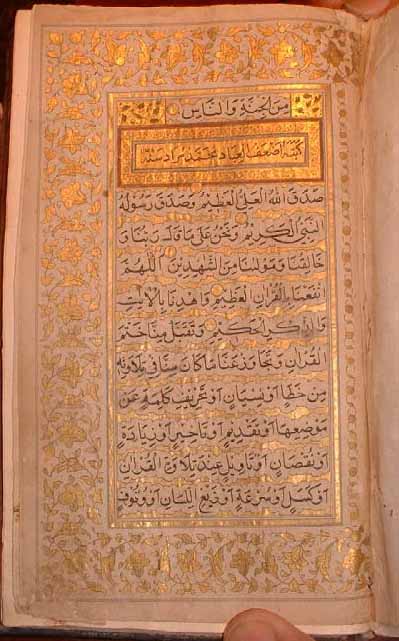 مِنَ الْجِنَّةِ وَالنَّاسِ
كتبه اضعف العباد محمد مراد سنة
صَدَقَ اللهُ الْعَلِيُّ الْعَظِيمُ وَصَدَقَ رَسُولُهُ
النَّبِيُّ الْكَرِيمُ وَنَحْنُ عَلَى مَا قَالَ رَبُّنَا وَ
خَالِقُنَا وَمَوْلٰينَا مِنَ الشّٰهِدِينَ اَللّٰهُمَّ
انْفَعْنَا بِالْقُرْاٰنِ الْعَظِيمِ وَاهْدِنَا بِالْاٰيٰتِ
وَالذِّكْرِ الْحَكِيمِ وَتَقَبَّلْ مِنَّا خَتْمَ
الْقُرْاٰنِ وَتَجَاوَزْ عَنَّا مَا كَانَ مِنَّا فِي تِلَاوَتِهِ
مِنْ خَطَإٍ اَوْ نِسْيَانٍ اَوْ تَحْرِيفِ كَلِمَةٍ عَنْ
مَوْضِعِهَا اَوْ تَقْدِيمٍ اَوْ تَاْخِيرٍ اَوْ زِيَادَةٍ
اَوْ نُقْصَانٍ اَوْ تَاْوِيلٍ عِنْدَ تِلَاوَةِ الْقُرْاٰنِ
اَوْ كَسَلٍ اَوْ سُرْعَةٍ اَوْ زَيْغِ اللِّسَانِ اَوْ وُقُوفٍ